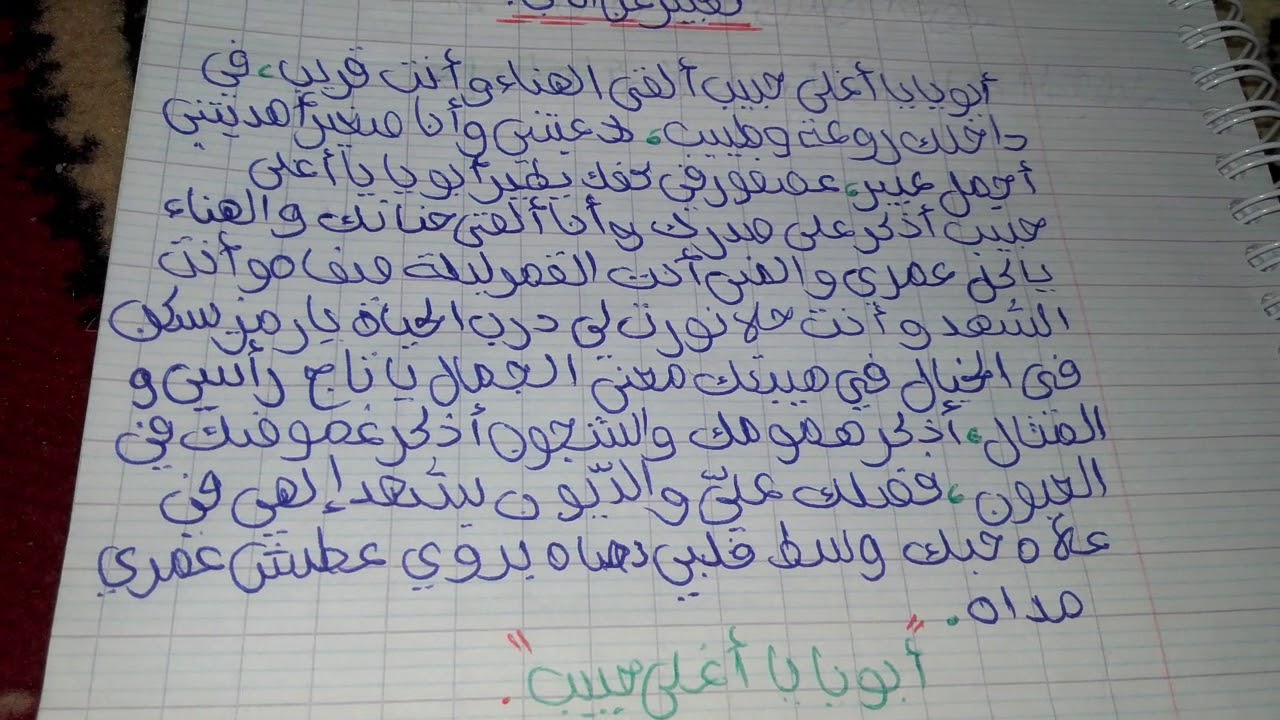 تعبير عن الأب.
أبويا يا أغلى حبيب ألقى الهناء وأنت قريب، في
داخلك روعة وطيب، دعتني وأنا صغير أهديتني
أجمل عبير، عصفور في كفك يطير أبويا يا أغلى
حبيب أذكر على صدرك وأنا ألقى حنانك والهناء
يا كل عمري والمنى أنت القمر ليلة صفاه وأنت
الشهد وأنت حلاه نورت لي درب الحياة يا رمز سكن
في الخيال في هيبتك معنى الجمال يا تاج رأسي و
المثال، أذكر همومك والشجون أذكر غموضك في
العيون، فضلك عليّ والدّيون يشهد إلهي في
علاه حبك وسط قلبي دماه يروي عطش عمري
مداه.
"أبويا يا أغلى حبيب".